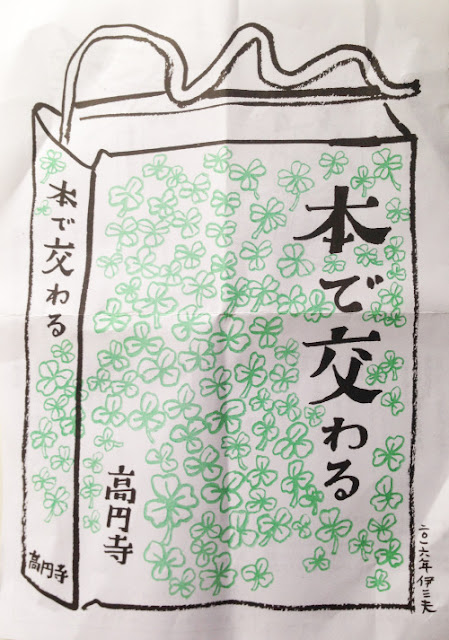 本で交わる
高円寺
二〇一六年 伊三夫
本で交わる
高円寺